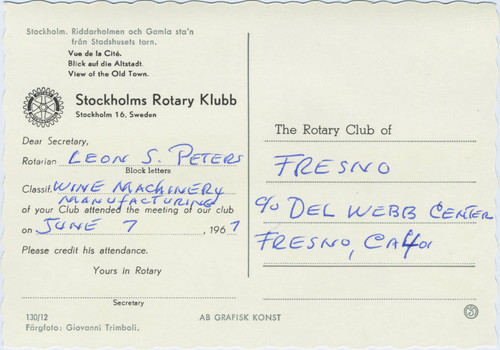 Stockholm. Riddarholmen och Gamla sta'n
från Stadshusets torn.
Vue de la Cité.
Blick auf die Altstadt.
View of the Old Town.
Stockholms Rotary Klubb
Stockholm 16, Sweden
Dear Secretary,
Rotarian LEON S. PETERS
Block letters
Classif. WINE MACHINERY
MANUFACTURING
of your Club attended the meeting of our club
on JUNE 7, 1967
Please credit his attendance.
Yours in Rotary
Secretary
130/12
Färgfoto: Giovanni Trimboli.
AB GRAFISK KONST
The Rotary Club of
FRESNO
c/o DEL WEBB CENTER
FRESNO, CA